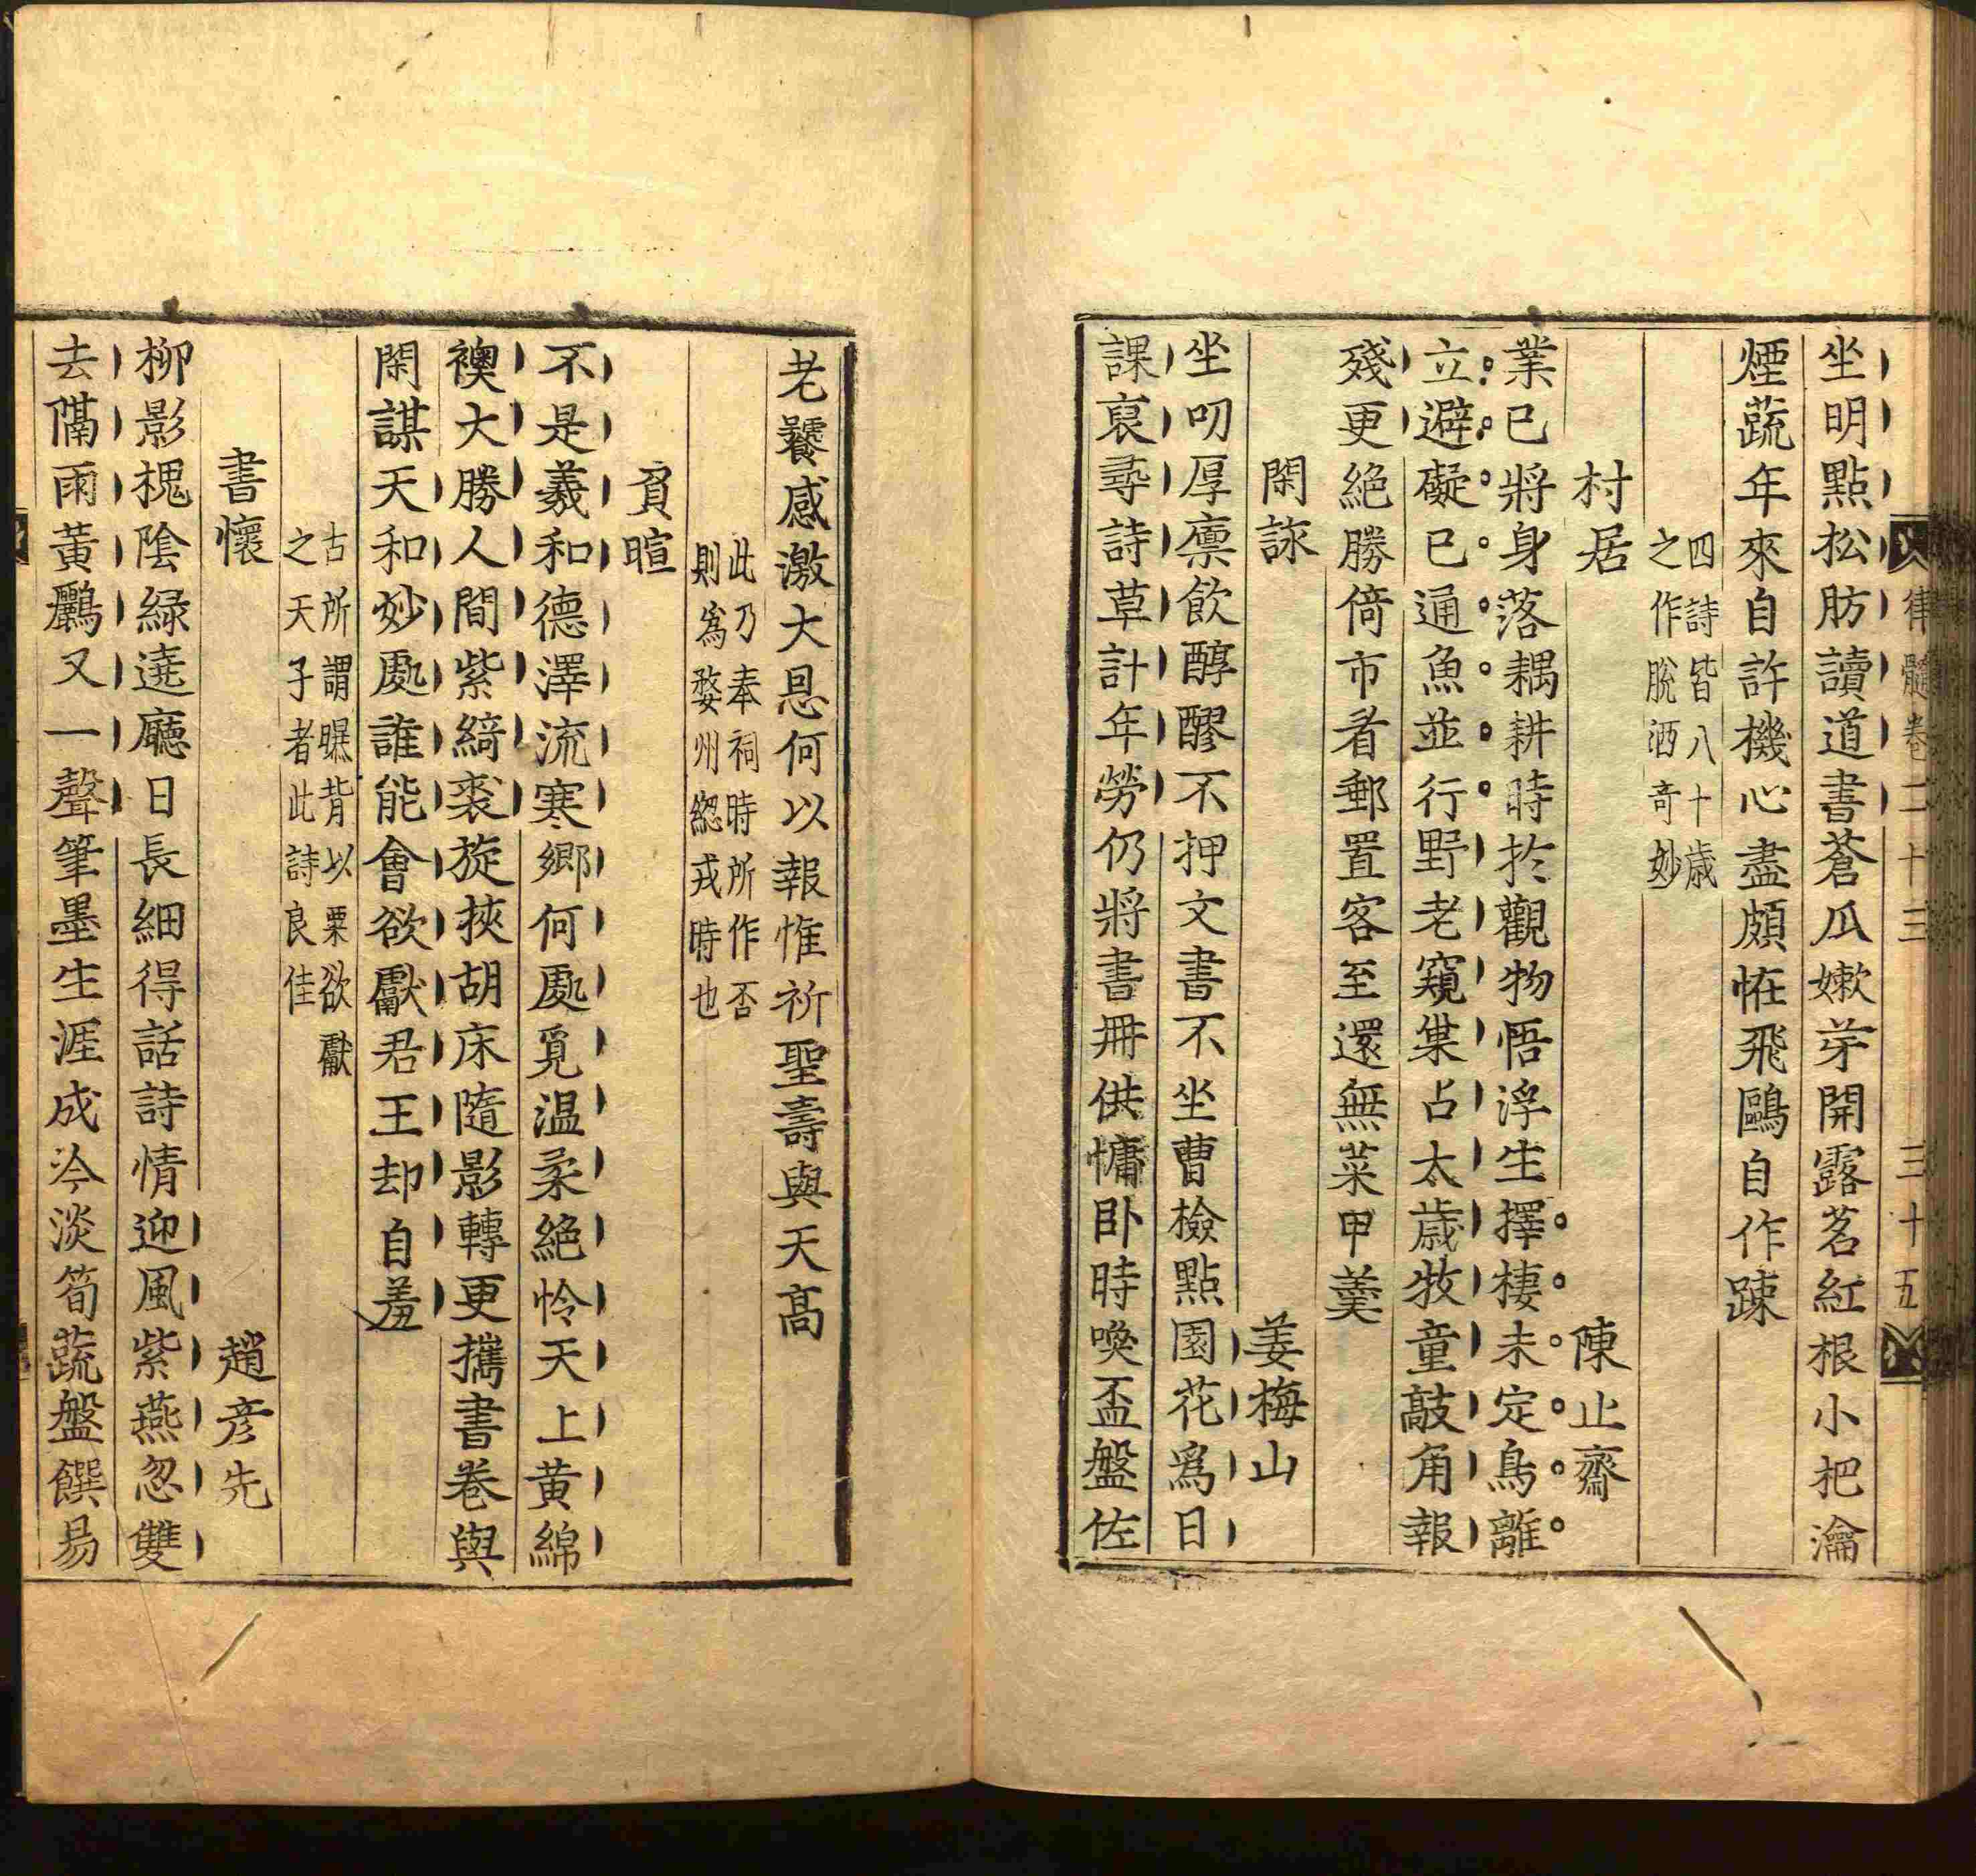 律髓卷二十三　三十五
坐明點松肪讀道書蒼瓜嫩芽開露茗紅根小把瀹
煙蔬年來自許機心盡頗恠飛鷗自作踈
四詩皆八十歲
之作脫洒奇妙
村居　陳止齋
業已將身落耦耕時於觀物悟浮生擇棲未定鳥離
立避礙已通魚並行野老窺巢占太歲牧童敲角報
殘更絕勝倚市看郵置客至還無菜甲羮
閑詠　姜梅山
坐叨厚廪飲醇醪不押文書不坐曹檢點園花爲日
課裒尋詩草計年勞仍將書冊供慵卧時喚盃盤佐
老饕感激大恩何以報惟祈聖壽與天髙
此乃奉祠時所作否
則爲婺州緫戎時也
負暄
不是羲和德澤流寒鄉何處覓温柔絕怜天上黄綿
襖大勝人間紫綺裘旋挾胡床隨影轉更攜書卷與
閑謀天和妙處誰能會欲獻君王却自羞
古所謂曝背以栗欲獻
之天子者此詩良佳
書懷　趙彦先
柳影槐陰緑遶廳日長細得話詩情迎風紫燕忽雙
去隔雨黄鸝又一聲筆墨生涯成冷淡筍蔬盤饌易